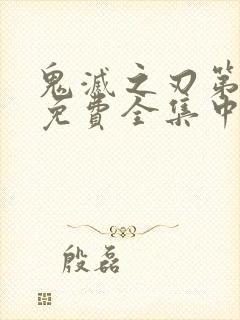 鬼滅之刃第
免費全集中
殷磊